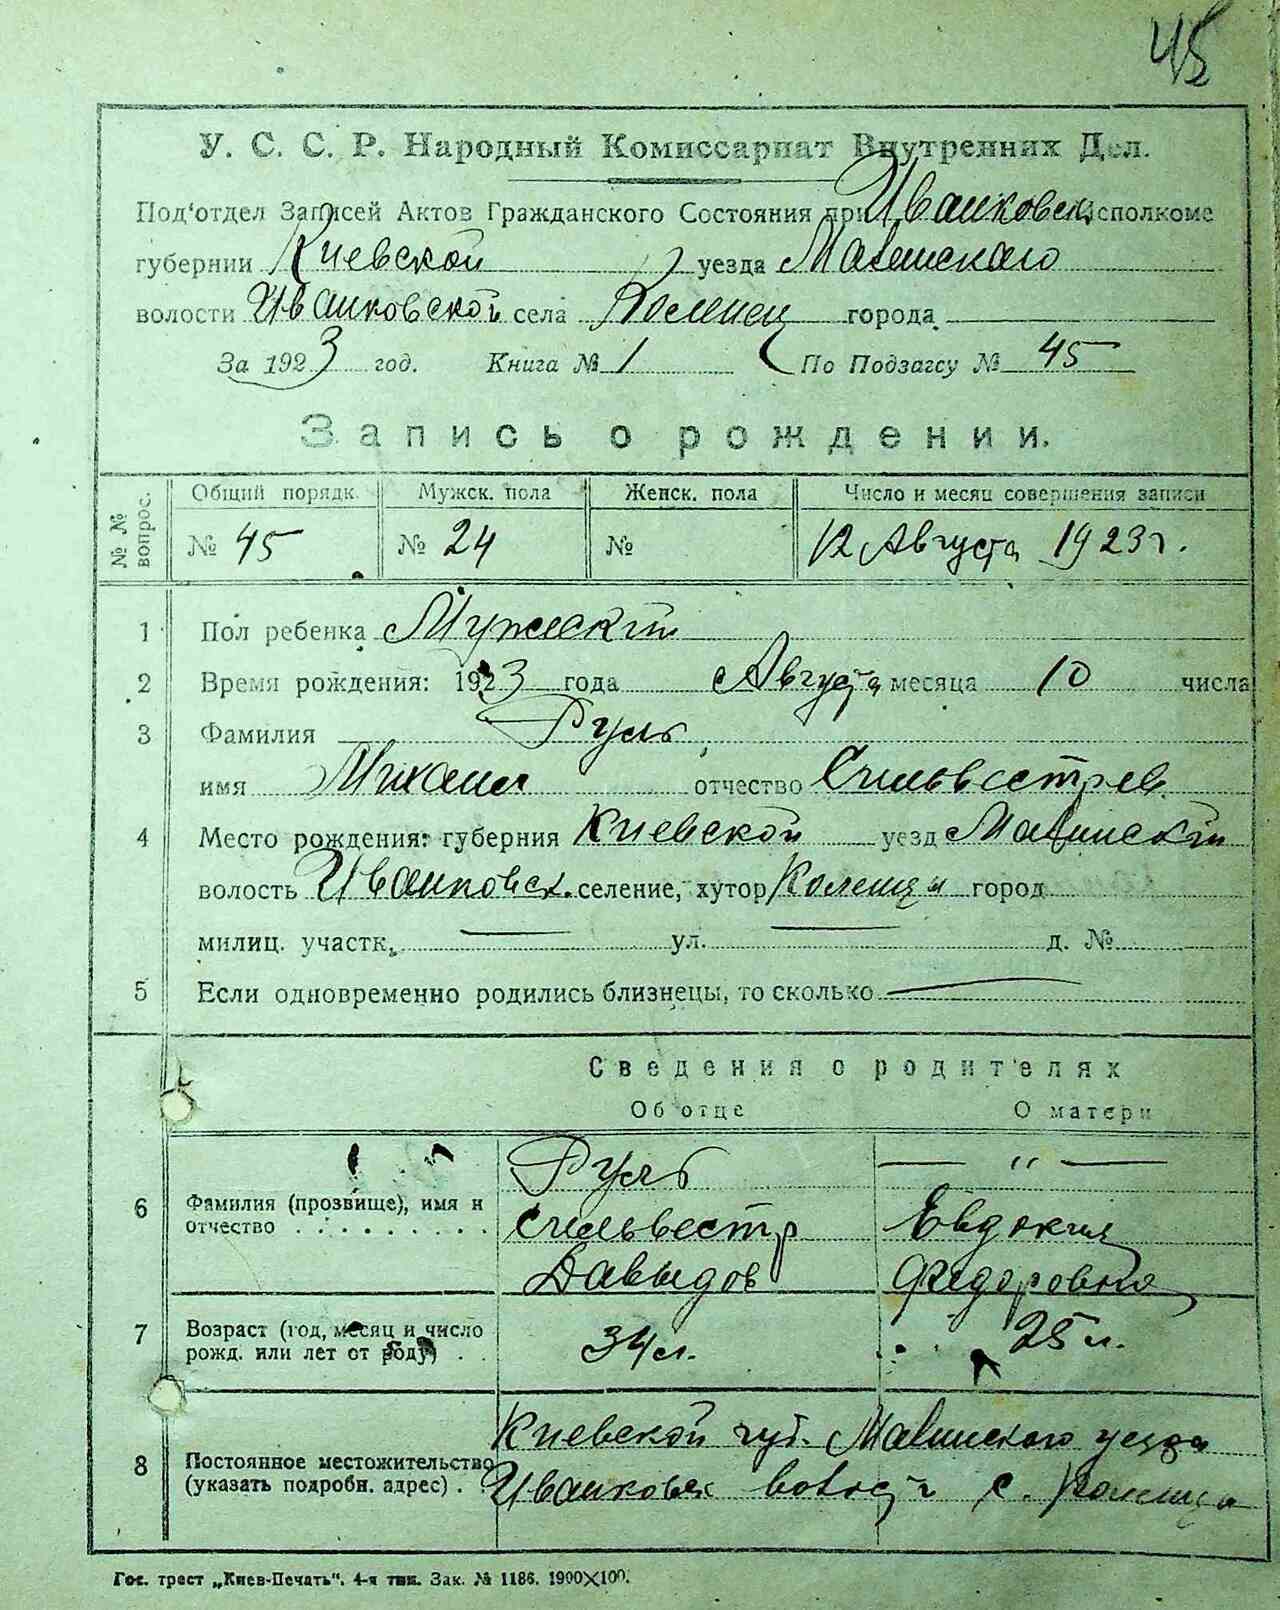 45
У. С. С. Р. Народный Комиссариат Внутренних Дел.
Под'отдел Записей Актов Гражданского Состояния при Иванковск. Исполкоме
губернии Киевской уезда Малинскаго
волости Иванковской села Коленец города
За 1923 год. Книга № 1 По Подзагсу № 45
Запись о рождении.
№ № вопрос. Общий порядк. Мужск. пола Женск. пола Число и месяц совершения записи
№ 45 № 24 № 12 Августа 1923 г.
1 Пол ребенка Мужескій
2 Время рождения: 1923 года Августа месяца 10 числа
3 Фамилия Руль
имя Михаил отчество Сильвестров.
4 Место рождения: губерния Киевской уезд Малинскій
волость Иванковск. селение, хутор Коленцы город
милиц. участк. — ул. — д. №
5 Если одновременно родились близнецы, то сколько —
Сведения о родителях
Об отце О матери
Руль — " —
6 Фамилия (прозвище), имя и отчество . . . . . . . . . Сильвестр Евдокия
Давыдов Федоровна
7 Возраст (год, месяц и число рожд. или лет от роду) . . 34 л. 25 л.
Киевской губ. Малинскаго уезда
8 Постоянное местожительство (указать подробн. адрес) . Иванковск волости с. Коленца
Гос. трест „Киев-Печать". 4-я тип. Зак. № 1186. 1900×100.